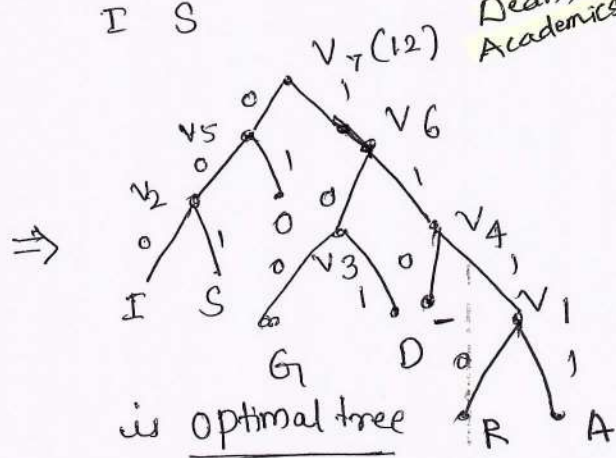 I S
Dean,
Academics
V7 (12)
0 1
V5 V6
0 1 0 1
V2 O V3 V4
0 1 0 1 0 1
I S G D - V1
0 1
R A
⇒
is optimal tree